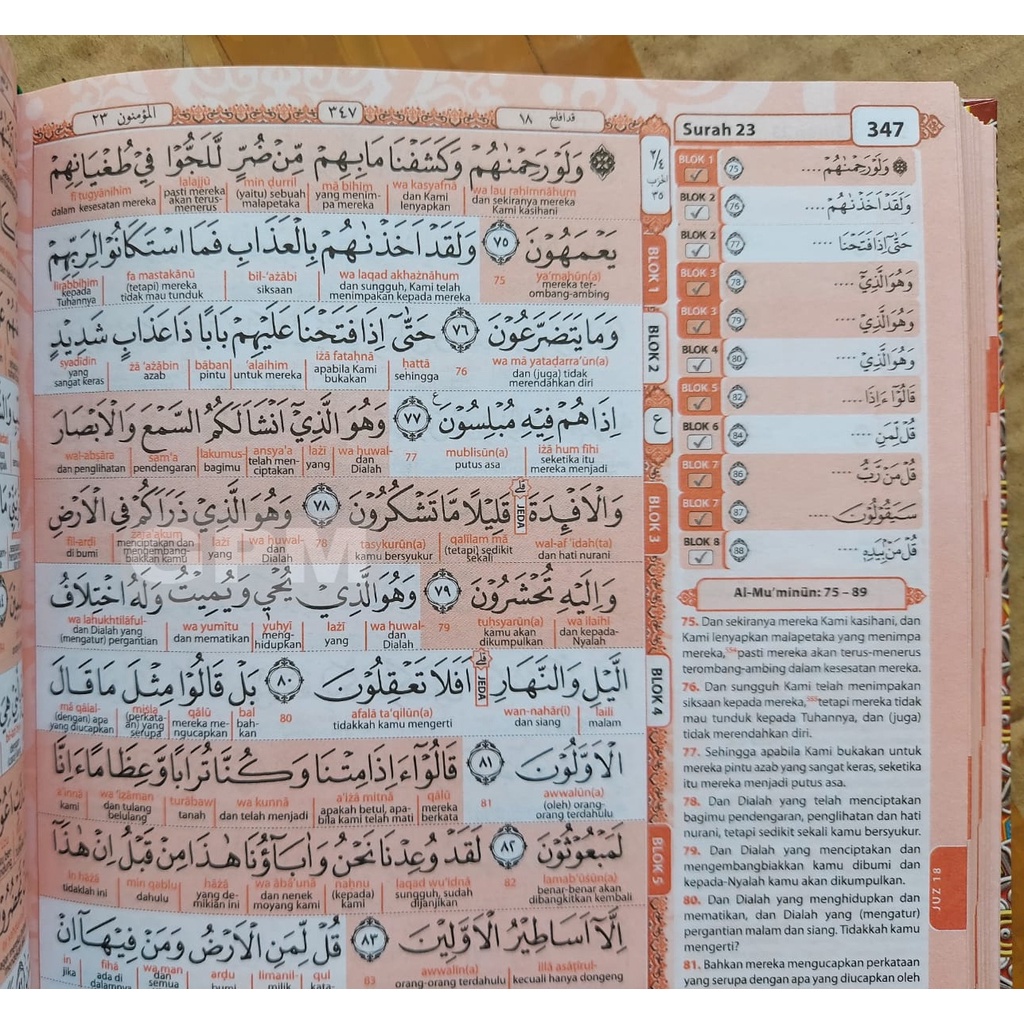 المؤمنون ٢٣
٣٤٧
قدافلح ١٨
وَلَوْ رَحِمْنٰهُمْ وَكَشَفْنَا مَا بِهِمْ مِّنْ ضُرٍّ لَّلَجُّوْا فِيْ طُغْيَانِهِمْ
wa lau raḥimnāhum wa kasyafnā mā bihim min ḍurril lalajjū fī ṭugyānihim
dan sekiranya mereka Kami kasihani dan Kami lenyapkan yang menimpa mereka (yaitu) sebuah malapetaka pasti mereka akan terus-menerus dalam kesesatan mereka
يَعْمَهُوْنَ ٧٥ وَلَقَدْ اَخَذْنٰهُمْ بِالْعَذَابِ فَمَا اسْتَكَانُوْا لِرَبِّهِمْ
ya‘mahūn(a) 75 wa laqad akhażnāhum bil-‘ażābi fa mastakānū lirabbihim
mereka terombang-ambing dan sungguh, Kami telah menimpakan kepada mereka siksaan (tetapi) mereka tidak mau tunduk kepada Tuhannya
وَمَا يَتَضَرَّعُوْنَ ٧٦ حَتّٰىٓ اِذَا فَتَحْنَا عَلَيْهِمْ بَابًا ذَا عَذَابٍ شَدِيْدٍ
wa mā yataḍarra‘ūn(a) 76 ḥattā iżā fataḥnā ‘alaihim bāban żā ‘ażābin syadīdin
dan (juga) tidak merendahkan diri sehingga apabila Kami bukakan untuk mereka pintu azab yang sangat keras
اِذَا هُمْ فِيْهِ مُبْلِسُوْنَ ٧٧ وَهُوَ الَّذِيْٓ اَنْشَاَ لَكُمُ السَّمْعَ وَالْاَبْصَارَ
iżā hum fīhi mublisūn(a) 77 wa huwal- lażī ansya'a lakumus- sam‘a wal-abṣāra
seketika itu mereka menjadi putus asa dan Dialah yang telah menciptakan bagimu pendengaran dan penglihatan
وَالْاَفْـِٕدَةَ JEDA قَلِيْلًا مَّا تَشْكُرُوْنَ ٧٨ وَهُوَ الَّذِيْ ذَرَاَكُمْ فِى الْاَرْضِ
wal-af'idah(ta) qalīlam mā tasykurūn(a) 78 wa huwal- lażī żara'akum fil-arḍi
dan hati nurani (tetapi) sedikit sekali kamu bersyukur dan Dialah yang menciptakan dan mengembangbiakkan kamu di bumi
وَاِلَيْهِ تُحْشَرُوْنَ ٧٩ وَهُوَ الَّذِيْ يُحْيٖ وَيُمِيْتُ وَلَهُ اخْتِلَافُ
wa ilaihi tuḥsyarūn(a) 79 wa huwal- lażī yuḥyī wa yumītu wa lahukhtilāful-
dan kepada-Nyalah kamu akan dikumpulkan dan Dialah yang menghidupkan dan mematikan dan Dialah yang (mengatur) pergantian
الَّيْلِ وَالنَّهَارِ JEDA اَفَلَا تَعْقِلُوْنَ ٨٠ بَلْ قَالُوْا مِثْلَ مَا قَالَ
laili wan-nahār(i) afalā ta‘qilūn(a) 80 bal qālū miṡla mā qālal-
malam dan siang tidakkah kamu mengerti bahkan mereka mengucapkan (perkataan) yang serupa (dengan) apa yang diucapkan
الْاَوَّلُوْنَ ٨١ قَالُوْٓا ءَاِذَا مِتْنَا وَكُنَّا تُرَابًا وَّعِظَامًا ءَاِنَّا
awwalūn(a) 81 qālū a'iżā mitnā wa kunnā turābaw wa ‘iẓāman a'innā
(oleh) orang-orang terdahulu mereka berkata apakah betul, apabila kami telah mati dan telah menjadi tanah dan tulang belulang kami
لَمَبْعُوْثُوْنَ ٨٢ لَقَدْ وُعِدْنَا نَحْنُ وَاٰبَاۤؤُنَا هٰذَا مِنْ قَبْلُ اِنْ هٰذَآ
lamab‘ūṡūn(a) 82 laqad wu‘idnā naḥnu wa ābā'unā hāżā min qablu in hāżā
benar-benar akan dibangkitkan kembali sungguh, sudah dijanjikan (kepada) kami dan nenek moyang kami yang demikian ini dahulu tidaklah ini
اِلَّآ اَسَاطِيْرُ الْاَوَّلِيْنَ ٨٣ قُلْ لِّمَنِ الْاَرْضُ وَمَنْ فِيْهَآ اِنْ
illā asāṭīrul- awwalīn(a) 83 qul limanil- arḍu wa man fīhā in
kecuali hanya dongeng orang-orang terdahulu katakan- milik bumi dan semua ada di dalamnya jika
٢/٤
الحزب
٣٥
BLOK 1
BLOK 2
ع
BLOK 3
BLOK 4
BLOK 5
Surah 23 347
BLOK 1 75 وَلَوْ رَحِمْنٰهُمْ ....
BLOK 2 76 وَلَقَدْ اَخَذْنٰهُمْ ....
BLOK 2 77 حَتّٰىٓ اِذَا فَتَحْنَا ....
BLOK 3 78 وَهُوَ الَّذِيْٓ ....
BLOK 3 79 وَهُوَ الَّذِيْ ....
BLOK 4 80 وَهُوَ الَّذِيْ ....
BLOK 5 82 قَالُوْٓا ءَاِذَا ....
BLOK 6 84 قُلْ لِّمَنِ ....
BLOK 7 86 قُلْ مَنْ رَّبُّ ....
BLOK 7 87 سَيَقُوْلُوْنَ ....
BLOK 8 88 قُلْ مَنْۢ بِيَدِهٖ ....
Al-Mu’minūn: 75 – 89
75. Dan sekiranya mereka Kami kasihani, dan
Kami lenyapkan malapetaka yang menimpa
mereka,⁵⁵⁴ pasti mereka akan terus-menerus
terombang-ambing dalam kesesatan mereka.
76. Dan sungguh Kami telah menimpakan
siksaan kepada mereka,⁵⁵⁵ tetapi mereka tidak
mau tunduk kepada Tuhannya, dan (juga)
tidak merendahkan diri.
77. Sehingga apabila Kami bukakan untuk
mereka pintu azab yang sangat keras, seketika
itu mereka menjadi putus asa.
78. Dan Dialah yang telah menciptakan
bagimu pendengaran, penglihatan dan hati
nurani, tetapi sedikit sekali kamu bersyukur.
79. Dan Dialah yang menciptakan dan
mengembangbiakkan kamu dibumi dan
kepada-Nyalah kamu akan dikumpulkan.
80. Dan Dialah yang menghidupkan dan
mematikan, dan Dialah yang (mengatur)
pergantian malam dan siang. Tidakkah kamu
mengerti?
81. Bahkan mereka mengucapkan perkataan
yang serupa dengan apa yang diucapkan oleh
JUZ 18